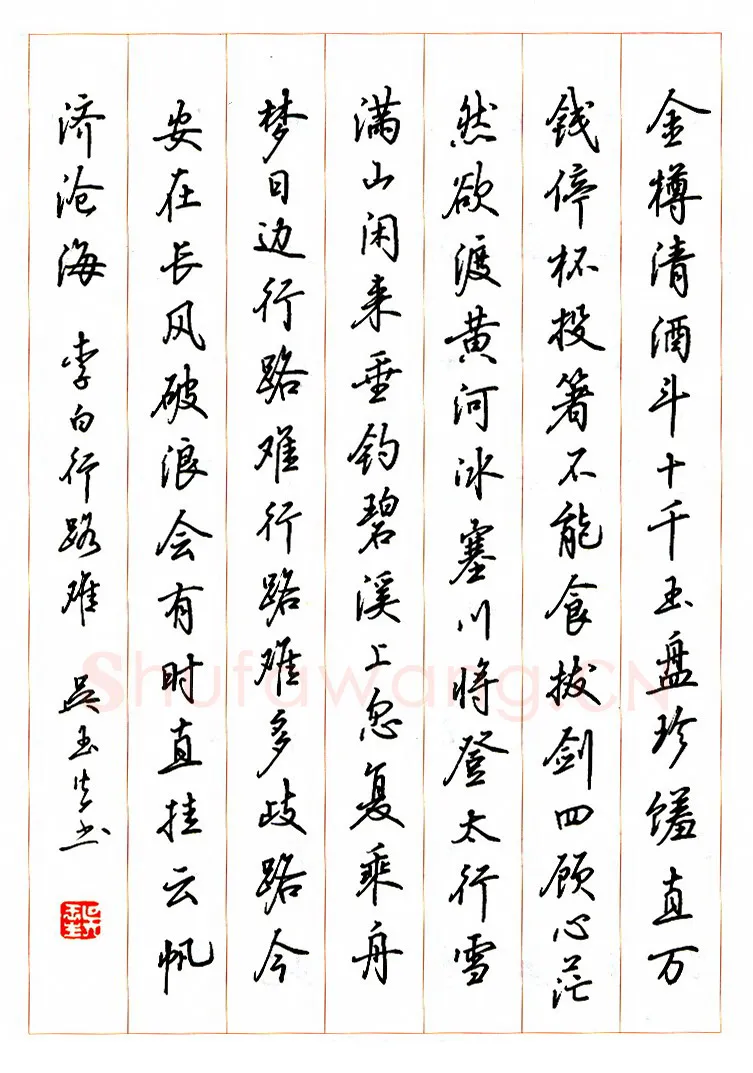 金樽清酒斗十千玉盘珍馐直万
钱停杯投箸不能食拔剑四顾心茫
然欲渡黄河冰塞川将登太行雪
满山闲来垂钓碧溪上忽复乘舟
梦日边行路难行路难多歧路今
安在长风破浪会有时直挂云帆
济沧海 李白行路难 吴玉生书
Shufawang.CN